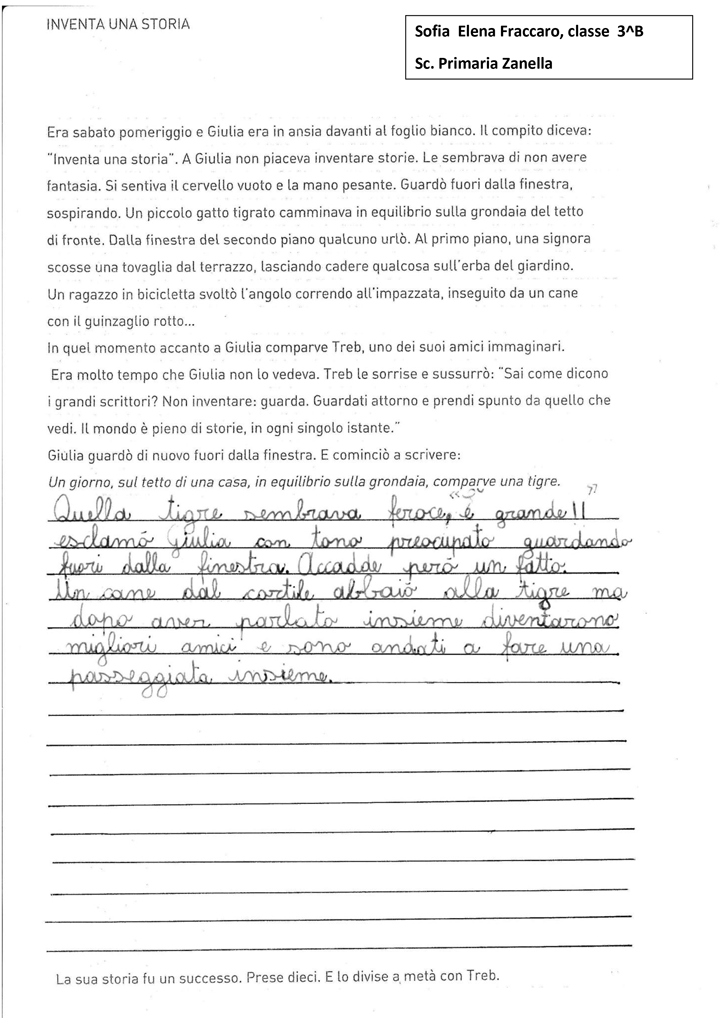 INVENTA UNA STORIA
Sofia Elena Fraccaro, classe 3^B
Sc. Primaria Zanella
Era sabato pomeriggio e Giulia era in ansia davanti al foglio bianco. Il compito diceva:
"Inventa una storia". A Giulia non piaceva inventare storie. Le sembrava di non avere
fantasia. Si sentiva il cervello vuoto e la mano pesante. Guardò fuori dalla finestra,
sospirando. Un piccolo gatto tigrato camminava in equilibrio sulla grondaia del tetto
di fronte. Dalla finestra del secondo piano qualcuno urlò. Al primo piano, una signora
scosse una tovaglia dal terrazzo, lasciando cadere qualcosa sull'erba del giardino.
Un ragazzo in bicicletta svoltò l'angolo correndo all'impazzata, inseguito da un cane
con il guinzaglio rotto...
In quel momento accanto a Giulia comparve Treb, uno dei suoi amici immaginari.
Era molto tempo che Giulia non lo vedeva. Treb le sorrise e sussurrò: "Sai come dicono
i grandi scrittori? Non inventare: guarda. Guardati attorno e prendi spunto da quello che
vedi. Il mondo è pieno di storie, in ogni singolo istante."
Giulia guardò di nuovo fuori dalla finestra. E cominciò a scrivere:
Un giorno, sul tetto di una casa, in equilibrio sulla grondaia, comparve una tigre.
Quella tigre sembrava feroce, "è grande!!"
esclamó Giulia con tono preocupato guardando
fuori dalla finestra. Accadde peró un fatto.
Un cane dal cortile abbaió alla tigre ma
dopo aver parlato insieme diventarono
migliori amici e sono andati a fare una
passeggiata insieme.
La sua storia fu un successo. Prese dieci. E lo divise a metà con Treb.